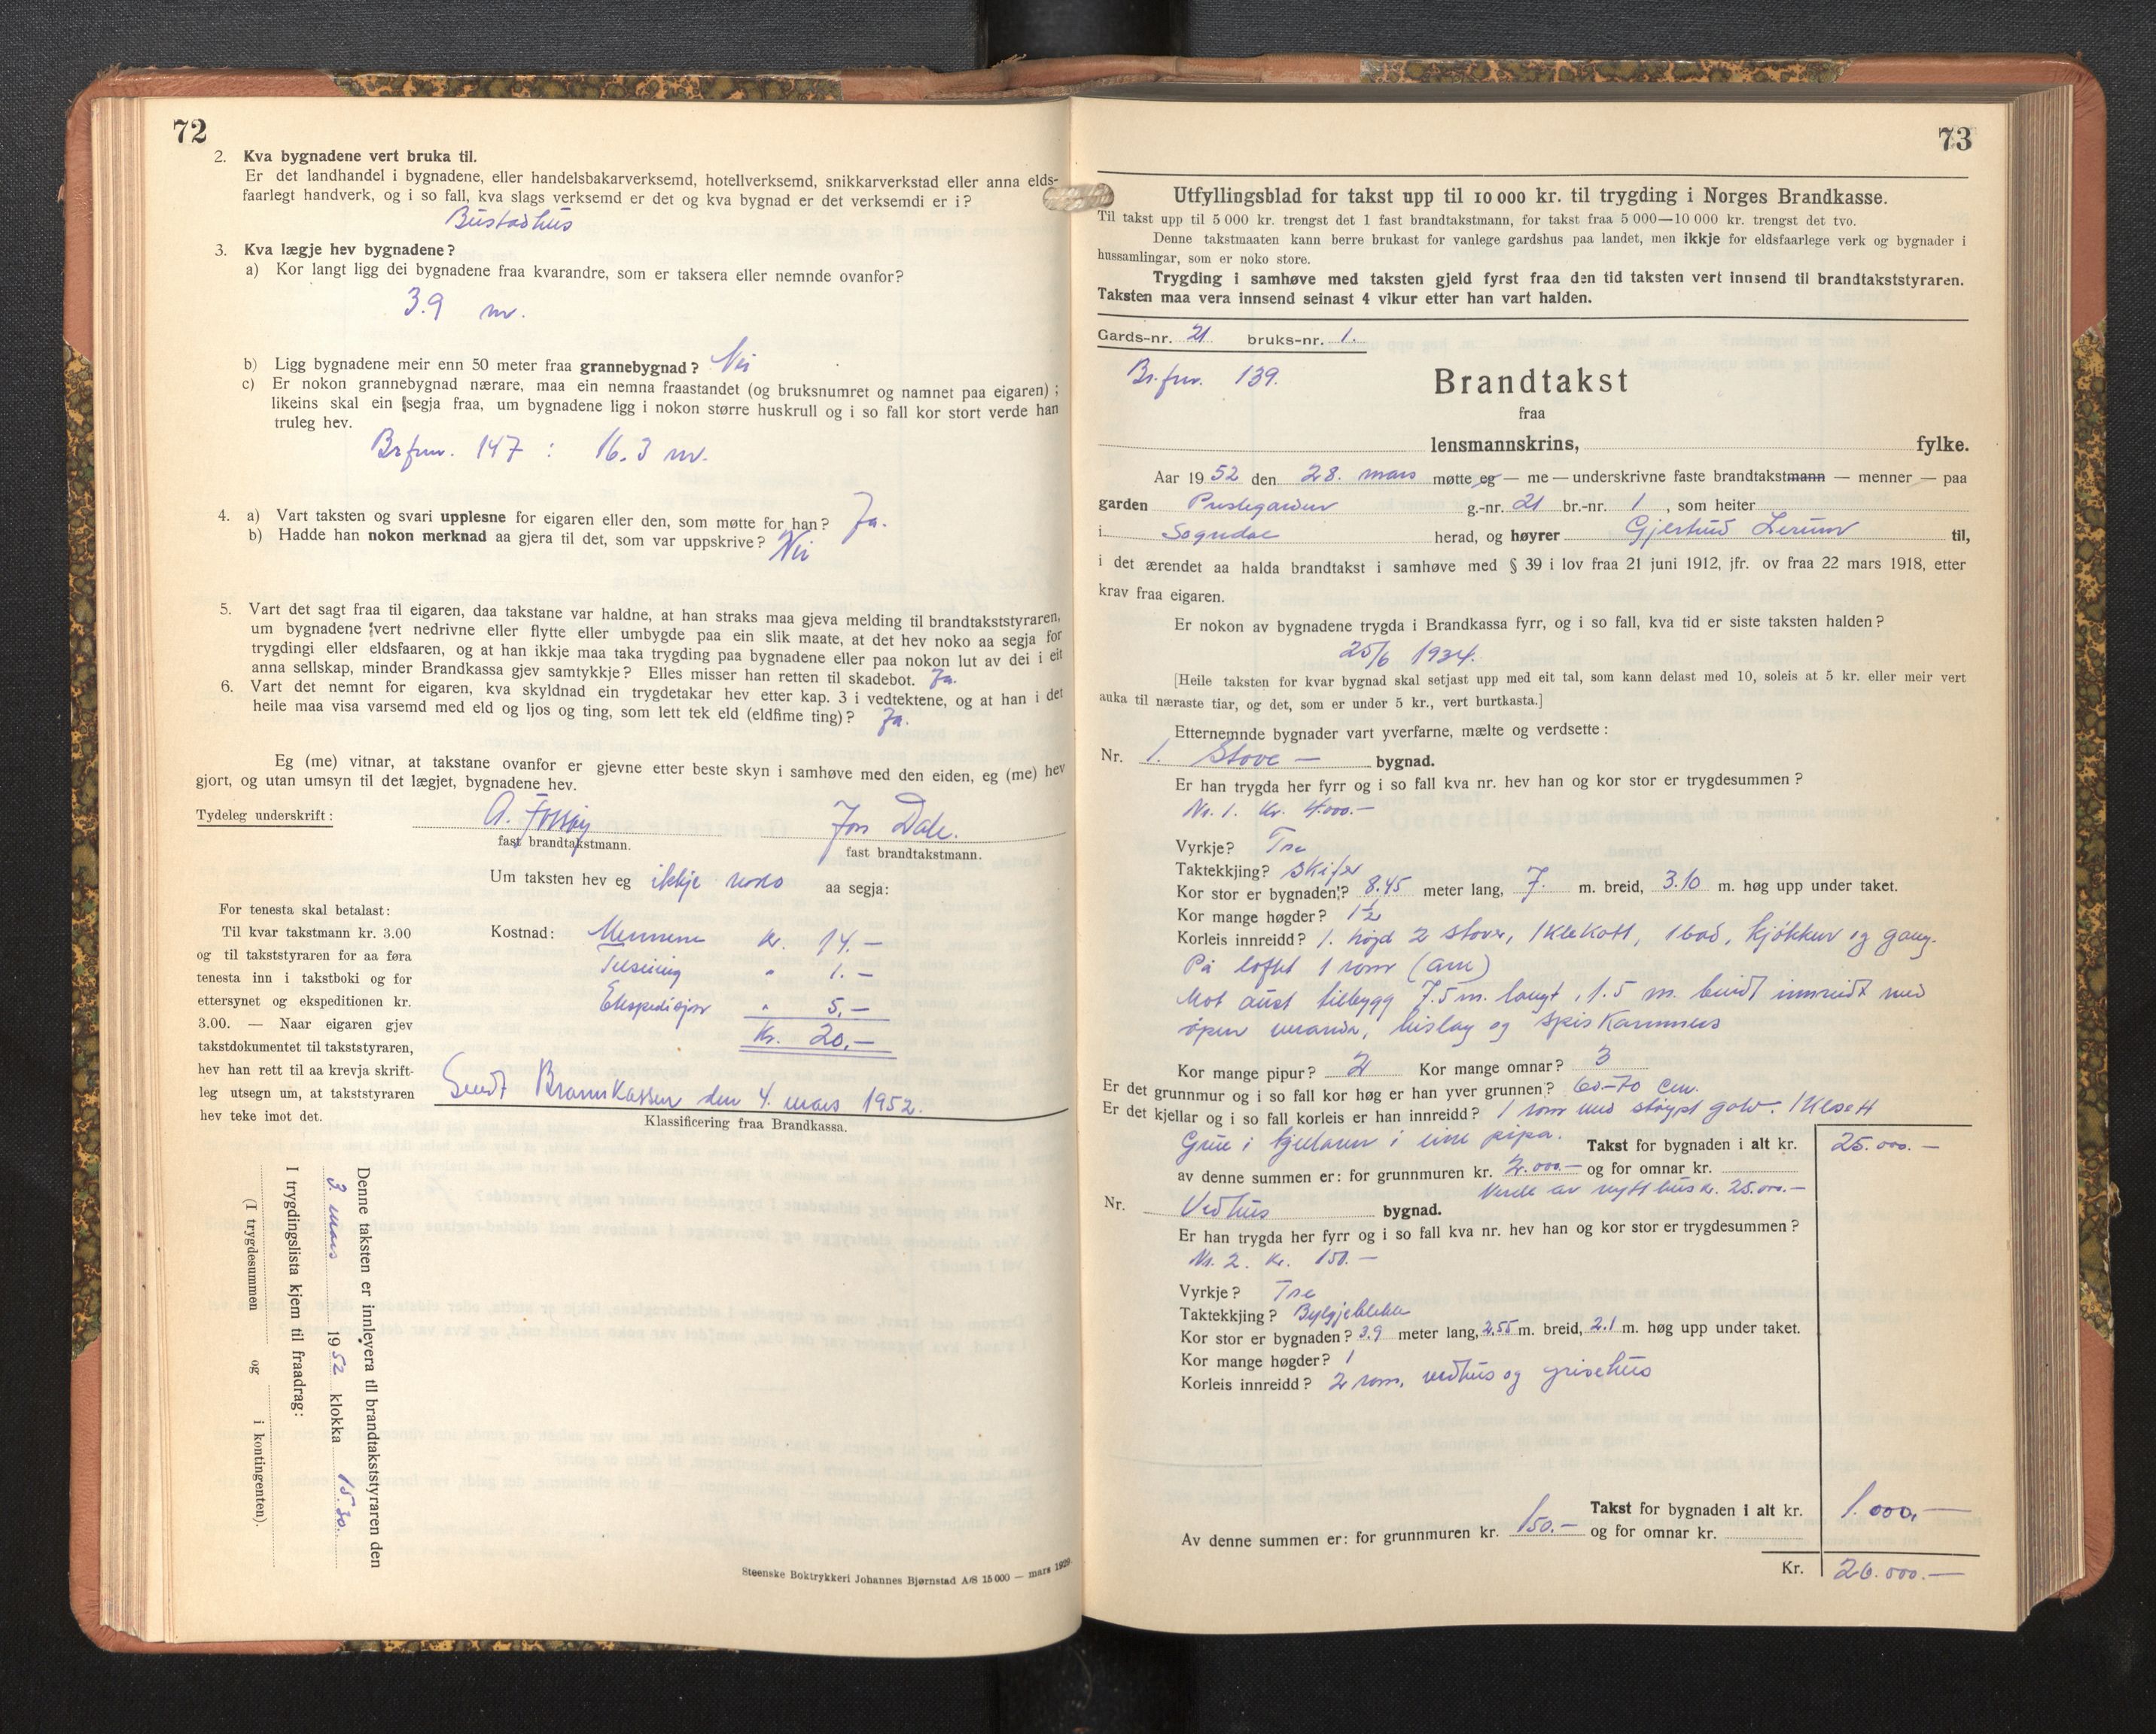 72
2. Kva bygnadene vert bruka til.
Er det landhandel i bygnadene, eller handelsbakarverksemd, hotellverksemd, snikkarverkstad eller anna elds-
faarlegt handverk, og i so fall, kva slags verksemd er det og kva bygnad er det verksemdi er i?
Bustadhus
3. Kva lægje hev bygnadene?
a) Kor langt ligg dei bygnadene fraa kvarandre, som er taksera eller nemnde ovanfor?
3.9 m.
b) Ligg bygnadene meir enn 50 meter fraa grannebygnad? Nei
c) Er nokon grannebygnad nærare, maa ein nemna fraastandet (og bruksnumret og namnet paa eigaren);
likeins skal ein segja fraa, um bygnadene ligg i nokon større huskrull og i so fall kor stort verde han
truleg hev.
Br.fnr. 147 : 16.3 m.
4. a) Vart taksten og svari upplesne for eigaren eller den, som møtte for han? Ja.
b) Hadde han nokon merknad aa gjera til det, som var uppskrive? Nei
5. Vart det sagt fraa til eigaren, daa takstane var haldne, at han straks maa gjeva melding til brandtakststyraren,
um bygnadene vert nedrivne eller flytte eller umbygde paa ein slik maate, at det hev noko aa segja for
trygdingi eller eldsfaaren, og at han ikkje maa taka trygding paa bygnadene eller paa nokon lut av dei i eit
anna sellskap, minder Brandkassa gjev samtykkje? Elles misser han retten til skadebot. Ja.
6. Vart det nemnt for eigaren, kva skyldnad ein trygdetakar hev etter kap. 3 i vedtektene, og at han i det
heile maa visa varsemd med eld og ljos og ting, som lett tek eld (eldfime ting)? Ja.
Eg (me) vitnar, at takstane ovanfor er gjevne etter beste skyn i samhøve med den eiden, eg (me) hev
gjort, og utan umsyn til det lægjet, bygnadene hev.
Tydeleg underskrift: A. Fossøy Jon Dale.
fast brandtakstmann. fast brandtakstmann.
Um taksten hev eg ikkje noko aa segja:
For tenesta skal betalast:
Til kvar takstmann kr. 3.00
og til takststyraren for aa føra
tenesta inn i takstboki og for
ettersynet og ekspeditionen kr.
3.00. — Naar eigaren gjev
takstdokumentet til takststyraren,
hev han rett til aa krevja skrift-
leg utsegn um, at takststyraren
hev teke imot det.
Kostnad: Mennene kr. 14.—
Telseiing " 1.—
Ekspedisjon " 5.—
Kr. 20.—
Sendt Brannkassen den 4. mars 1952.
Klassificering fraa Brandkassa.
Denne taksten er innlevera til brandtakststyraren den
3. mars 1952 klokka 15.30.
I trygdingslista kjem til fraadrag:
(I trygdesummen og i kontingenten).
Steenske Boktrykkeri Johannes Bjørnstad A/S 15 000 — mars 1929
73
Utfyllingsblad for takst upp til 10 000 kr. til trygding i Norges Brandkasse.
Til takst upp til 5 000 kr. trengst det 1 fast brandtakstmann, for takst fraa 5 000—10 000 kr. trengst det tvo.
Denne takstmaaten kann berre brukast for vanlege gardshus paa landet, men ikkje for eldsfaarlege verk og bygnader i
hussamlingar, som er noko store.
Trygding i samhøve med taksten gjeld fyrst fraa den tid taksten vert innsend til brandtakststyraren.
Taksten maa vera innsend seinast 4 vikur etter han vart halden.
Gards-nr. 21 bruks-nr. 1.
Br.fnr. 139.
Brandtakst
fraa
lensmannskrins, fylke.
Aar 1952 den 28. mars møtte eg — me — underskrivne faste brandtakstmann — menner — paa
garden Prestegarden g.-nr. 21 br.-nr. 1, som heiter
i Sogndal herad, og høyrer Gjertrud Lerum til,
i det ærendet aa halda brandtakst i samhøve med § 39 i lov fraa 21 juni 1912, jfr. ov fraa 22 mars 1918, etter
krav fraa eigaren.
Er nokon av bygnadene trygda i Brandkassa fyrr, og i so fall, kva tid er siste taksten halden?
25/6 1934.
[Heile taksten for kvar bygnad skal setjast upp med eit tal, som kann delast med 10, soleis at 5 kr. eller meir vert
auka til næraste tiar, og det, som er under 5 kr., vert burtkasta.]
Etternemnde bygnader vart yverfarne, mælte og verdsette:
Nr. 1. Stove — bygnad.
Er han trygda her fyrr og i so fall kva nr. hev han og kor stor er trygdesummen?
Nr. 1. Kr. 4.000.—
Vyrkje? Tre
Taktekkjing? Skifer
Kor stor er bygnaden? 8.45 meter lang, 7. m. breid, 3.10 m. høg upp under taket.
Kor mange høgder? 1½
Korleis innreidd? 1. høgd 2 stover, 1 klekott, 1 bad, kjøkken og gang.
På loftet 1 rom (ark)
Mot aust tilbygg 7.5 m. langt, 1.5 m. breidt innreidt med
open veranda, bislag og spiskammers
Kor mange pipur? 2 Kor mange omnar? 3
Er det grunnmur og i so fall kor høg er han yver grunnen? 60-70 cm.
Er det kjellar og i so fall korleis er han innreidd? 1 rom med støypt golv. 1 klosett
Grue i kjellaren i eine pipa. Takst for bygnaden i alt kr. 25.000.—
av denne summen er: for grunnmuren kr. 2.000.— og for omnar kr.
Verde av nytt hus kr. 25.000.—
Nr. Vedhus bygnad.
Er han trygda her fyrr og i so fall kva nr. hev han og kor stor er trygdesummen?
Nr. 2. Kr. 150.—
Vyrkje? Tre
Taktekkjing? Bylgjeblekk
Kor stor er bygnaden? 3.9 meter lang, 2.55 m. breid, 2.1 m. høg upp under taket.
Kor mange høgder? 1
Korleis innreidd? 2 rom, vedhus og grisehus
Takst for bygnaden i alt kr. 1.000.—
Av denne summen er: for grunnmuren kr. 150.— og for omnar kr.
Kr. 26.000.—